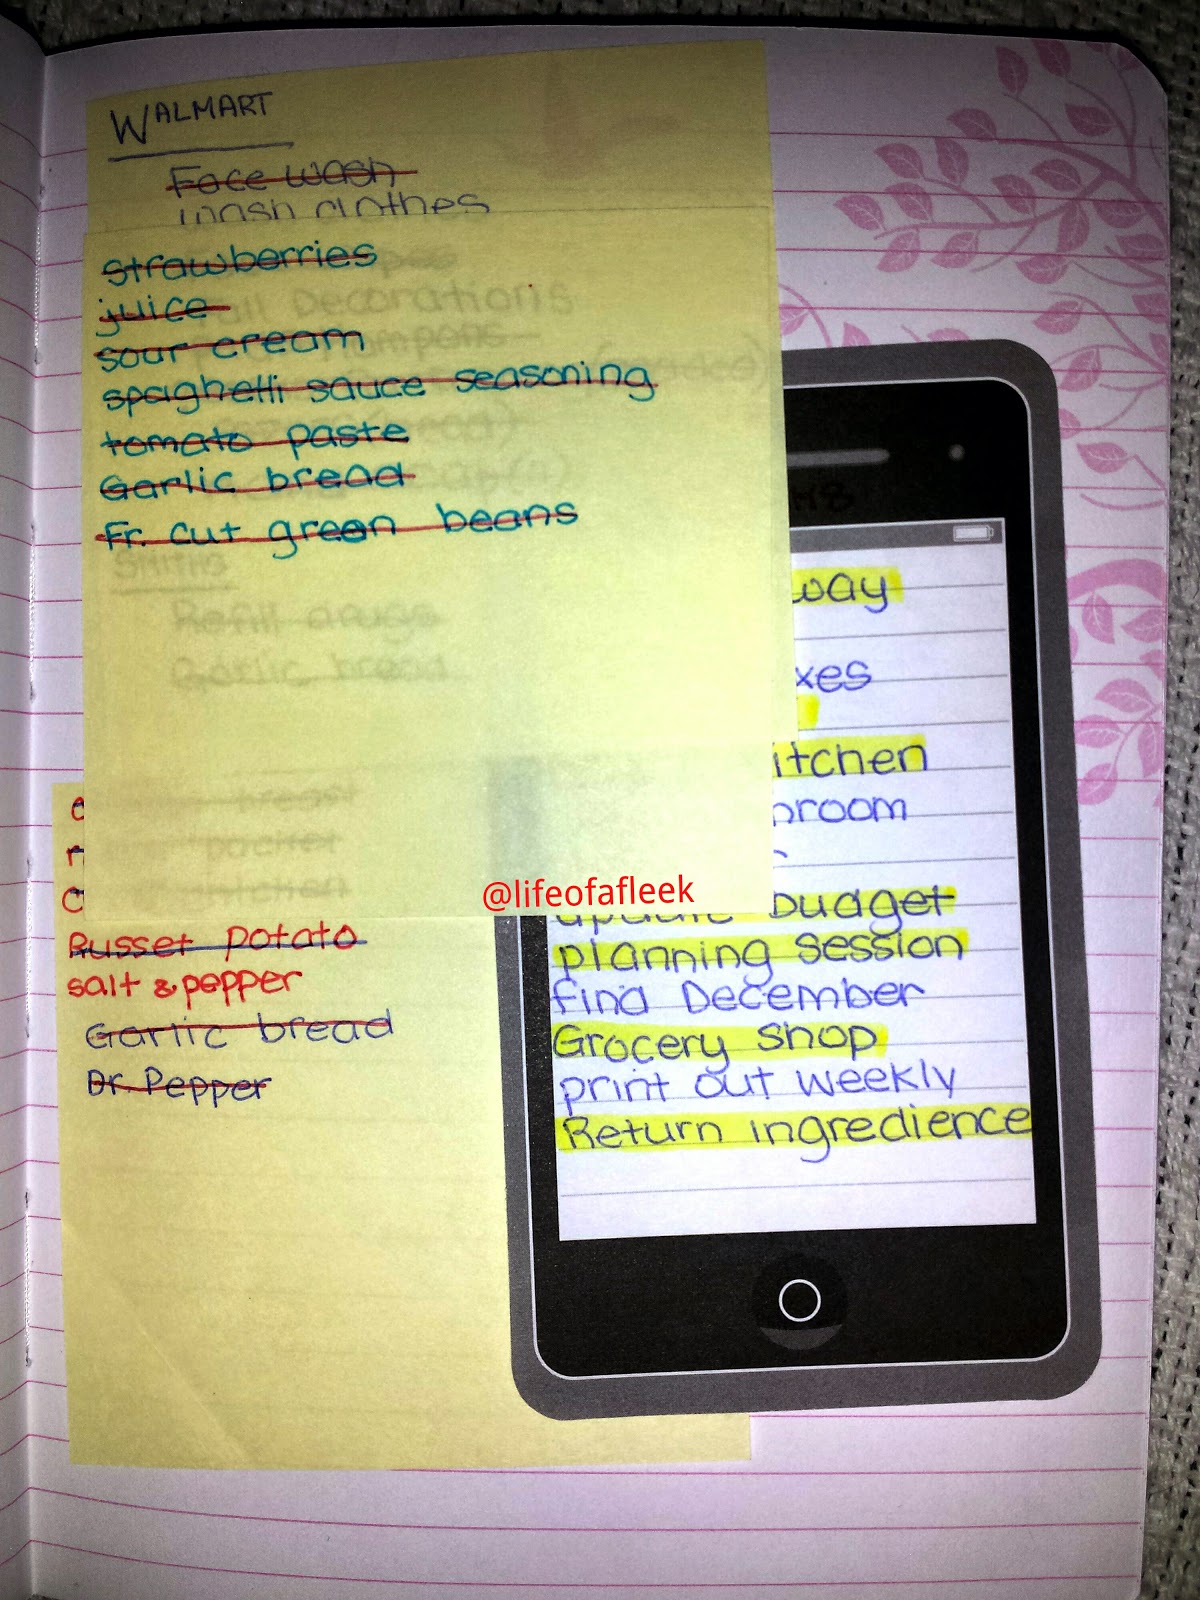 WALMART
Face wash
wash clothes
strawberries
juice
sour cream
spaghetti sauce seasoning
tomato paste
Garlic bread
Fr. cut green beans
Fall Decorations
Smiths
Refill drugs
Garlic bread
breast
packet
@lifeofafleek
Russet potato
salt & pepper
Garlic bread
Dr. Pepper
way
xes
itchen
room
update budget
planning session
find December
Grocery shop
print out weekly
Return ingredience